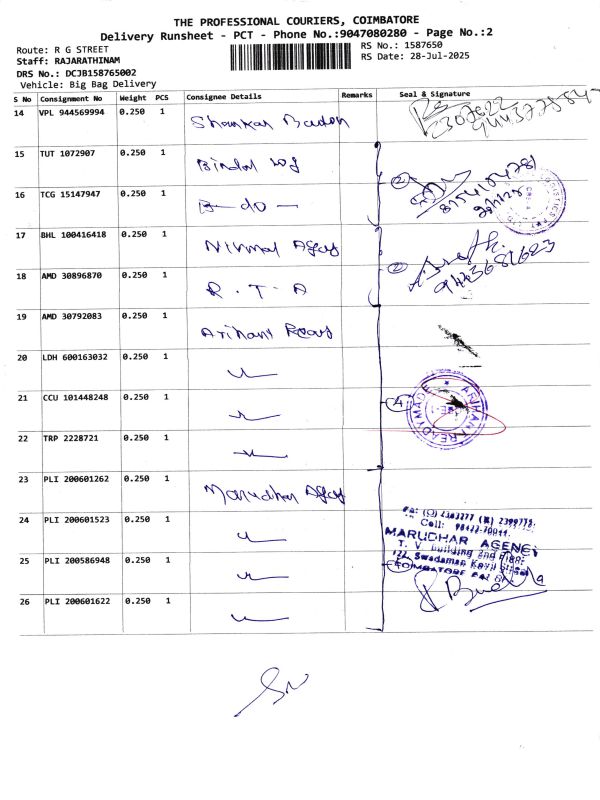 THE PROFESSIONAL COURIERS, COIMBATORE
Delivery Runsheet - PCT - Phone No.:9047080280 - Page No.:2
Route: R G STREET
RS No.: 1587650
Staff: RAJARATHINAM
RS Date: 28-Jul-2025
DRS No.: DCJB158765002
Vehicle: Big Bag Delivery
S No Consignment No Weight PCS Consignee Details Remarks Seal & Signature
14 VPL 944569994 0.250 1 Shankar
15 TUT 1072907 0.250 1 Bindal
16 TCG 15147947 0.250 1 - do -
17 BHL 100416418 0.250 1 Nirmal Agcy
18 AMD 30896870 0.250 1 R . T . A
19 AMD 30792083 0.250 1 Arihant Ready
20 LDH 600163032 0.250 1
21 CCU 101448248 0.250 1
22 TRP 2228721 0.250 1
23 PLI 200601262 0.250 1 Marudhar Agcy
24 PLI 200601523 0.250 1
25 PLI 200586948 0.250 1
26 PLI 200601622 0.250 1
2
2
9443681623
4
ARIHANT READYMADE
MARUDHAR AGENCY
T. V. Building 2nd Floor